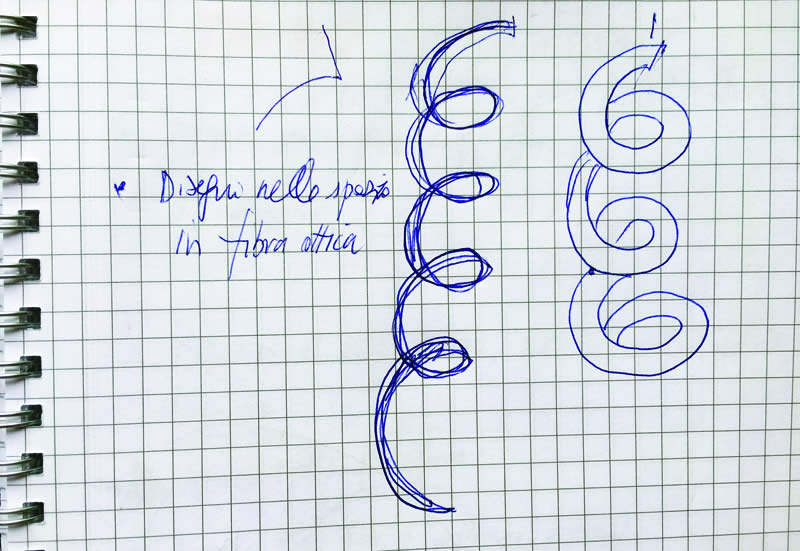 Disegni nello spazio
in fibra ottica